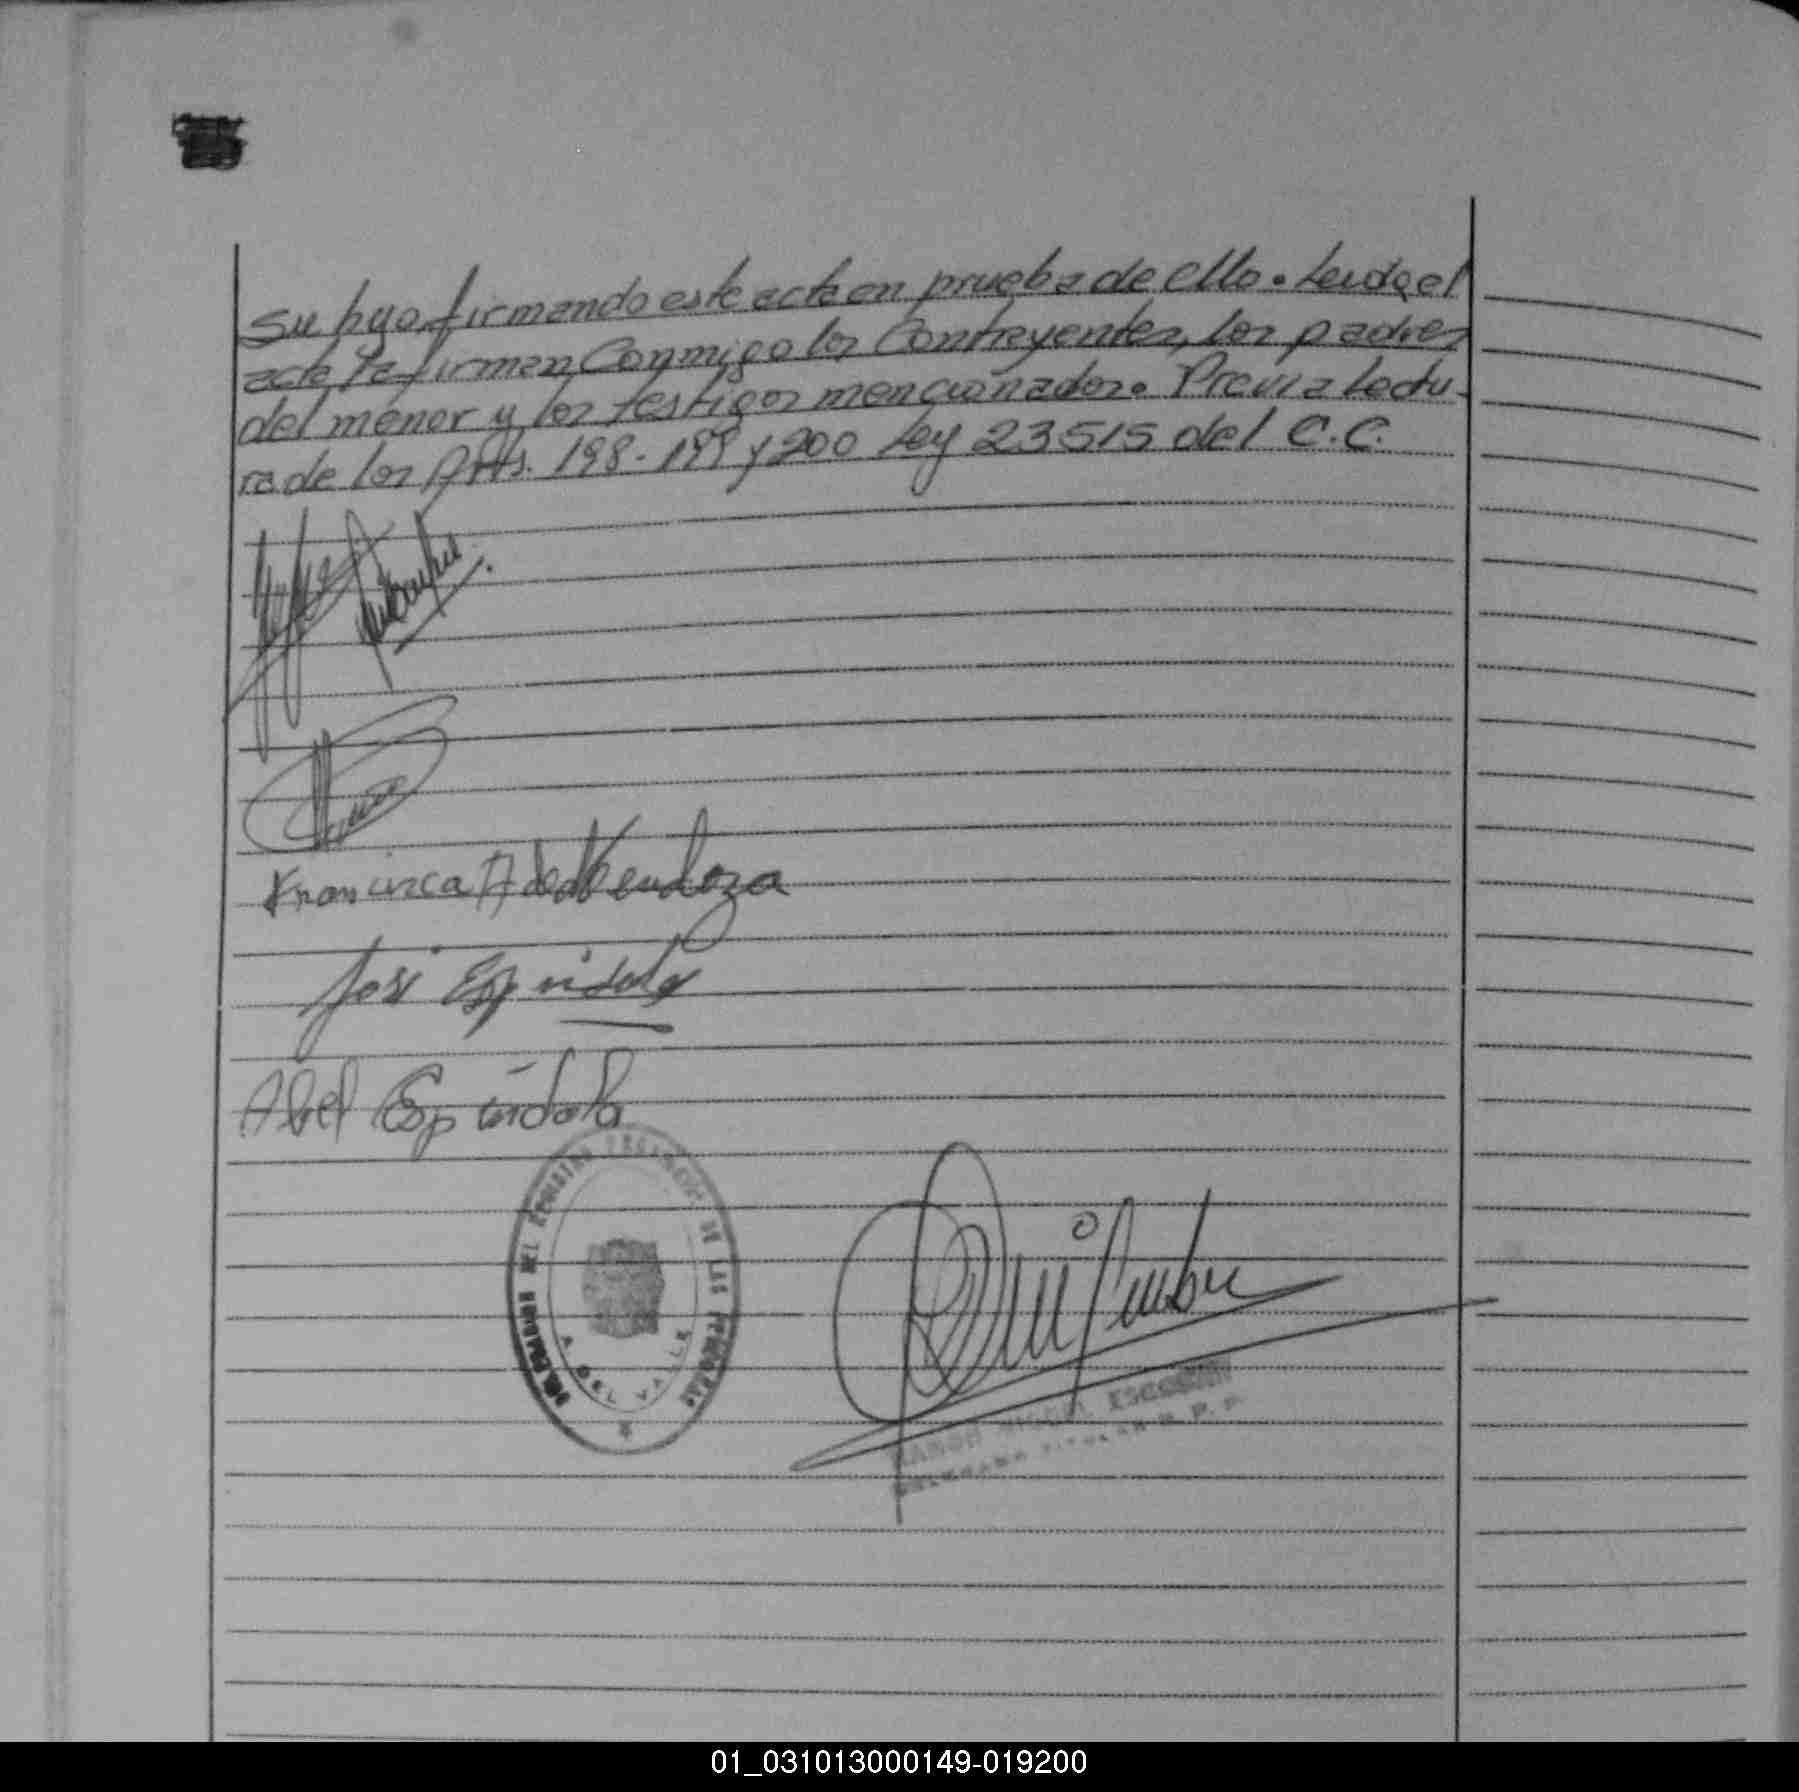 su hijo firmando este acta en prueba de ello. Leida el
acta la firman conmigo los Contrayentes, los padres
del menor y los testigos mencionados. Previa Lectu-
ra de los Arts. 198-199 y 200 Ley 23515 del C.C.
Francisca A de Mendoza
José Espindola
Abel Espíndola
DEL REGISTRO PROVINCIAL DE LAS PERSONAS
A. DEL VALLE
RAMON MIGUEL
TITULAR R. P. P.
01_031013000149-019200